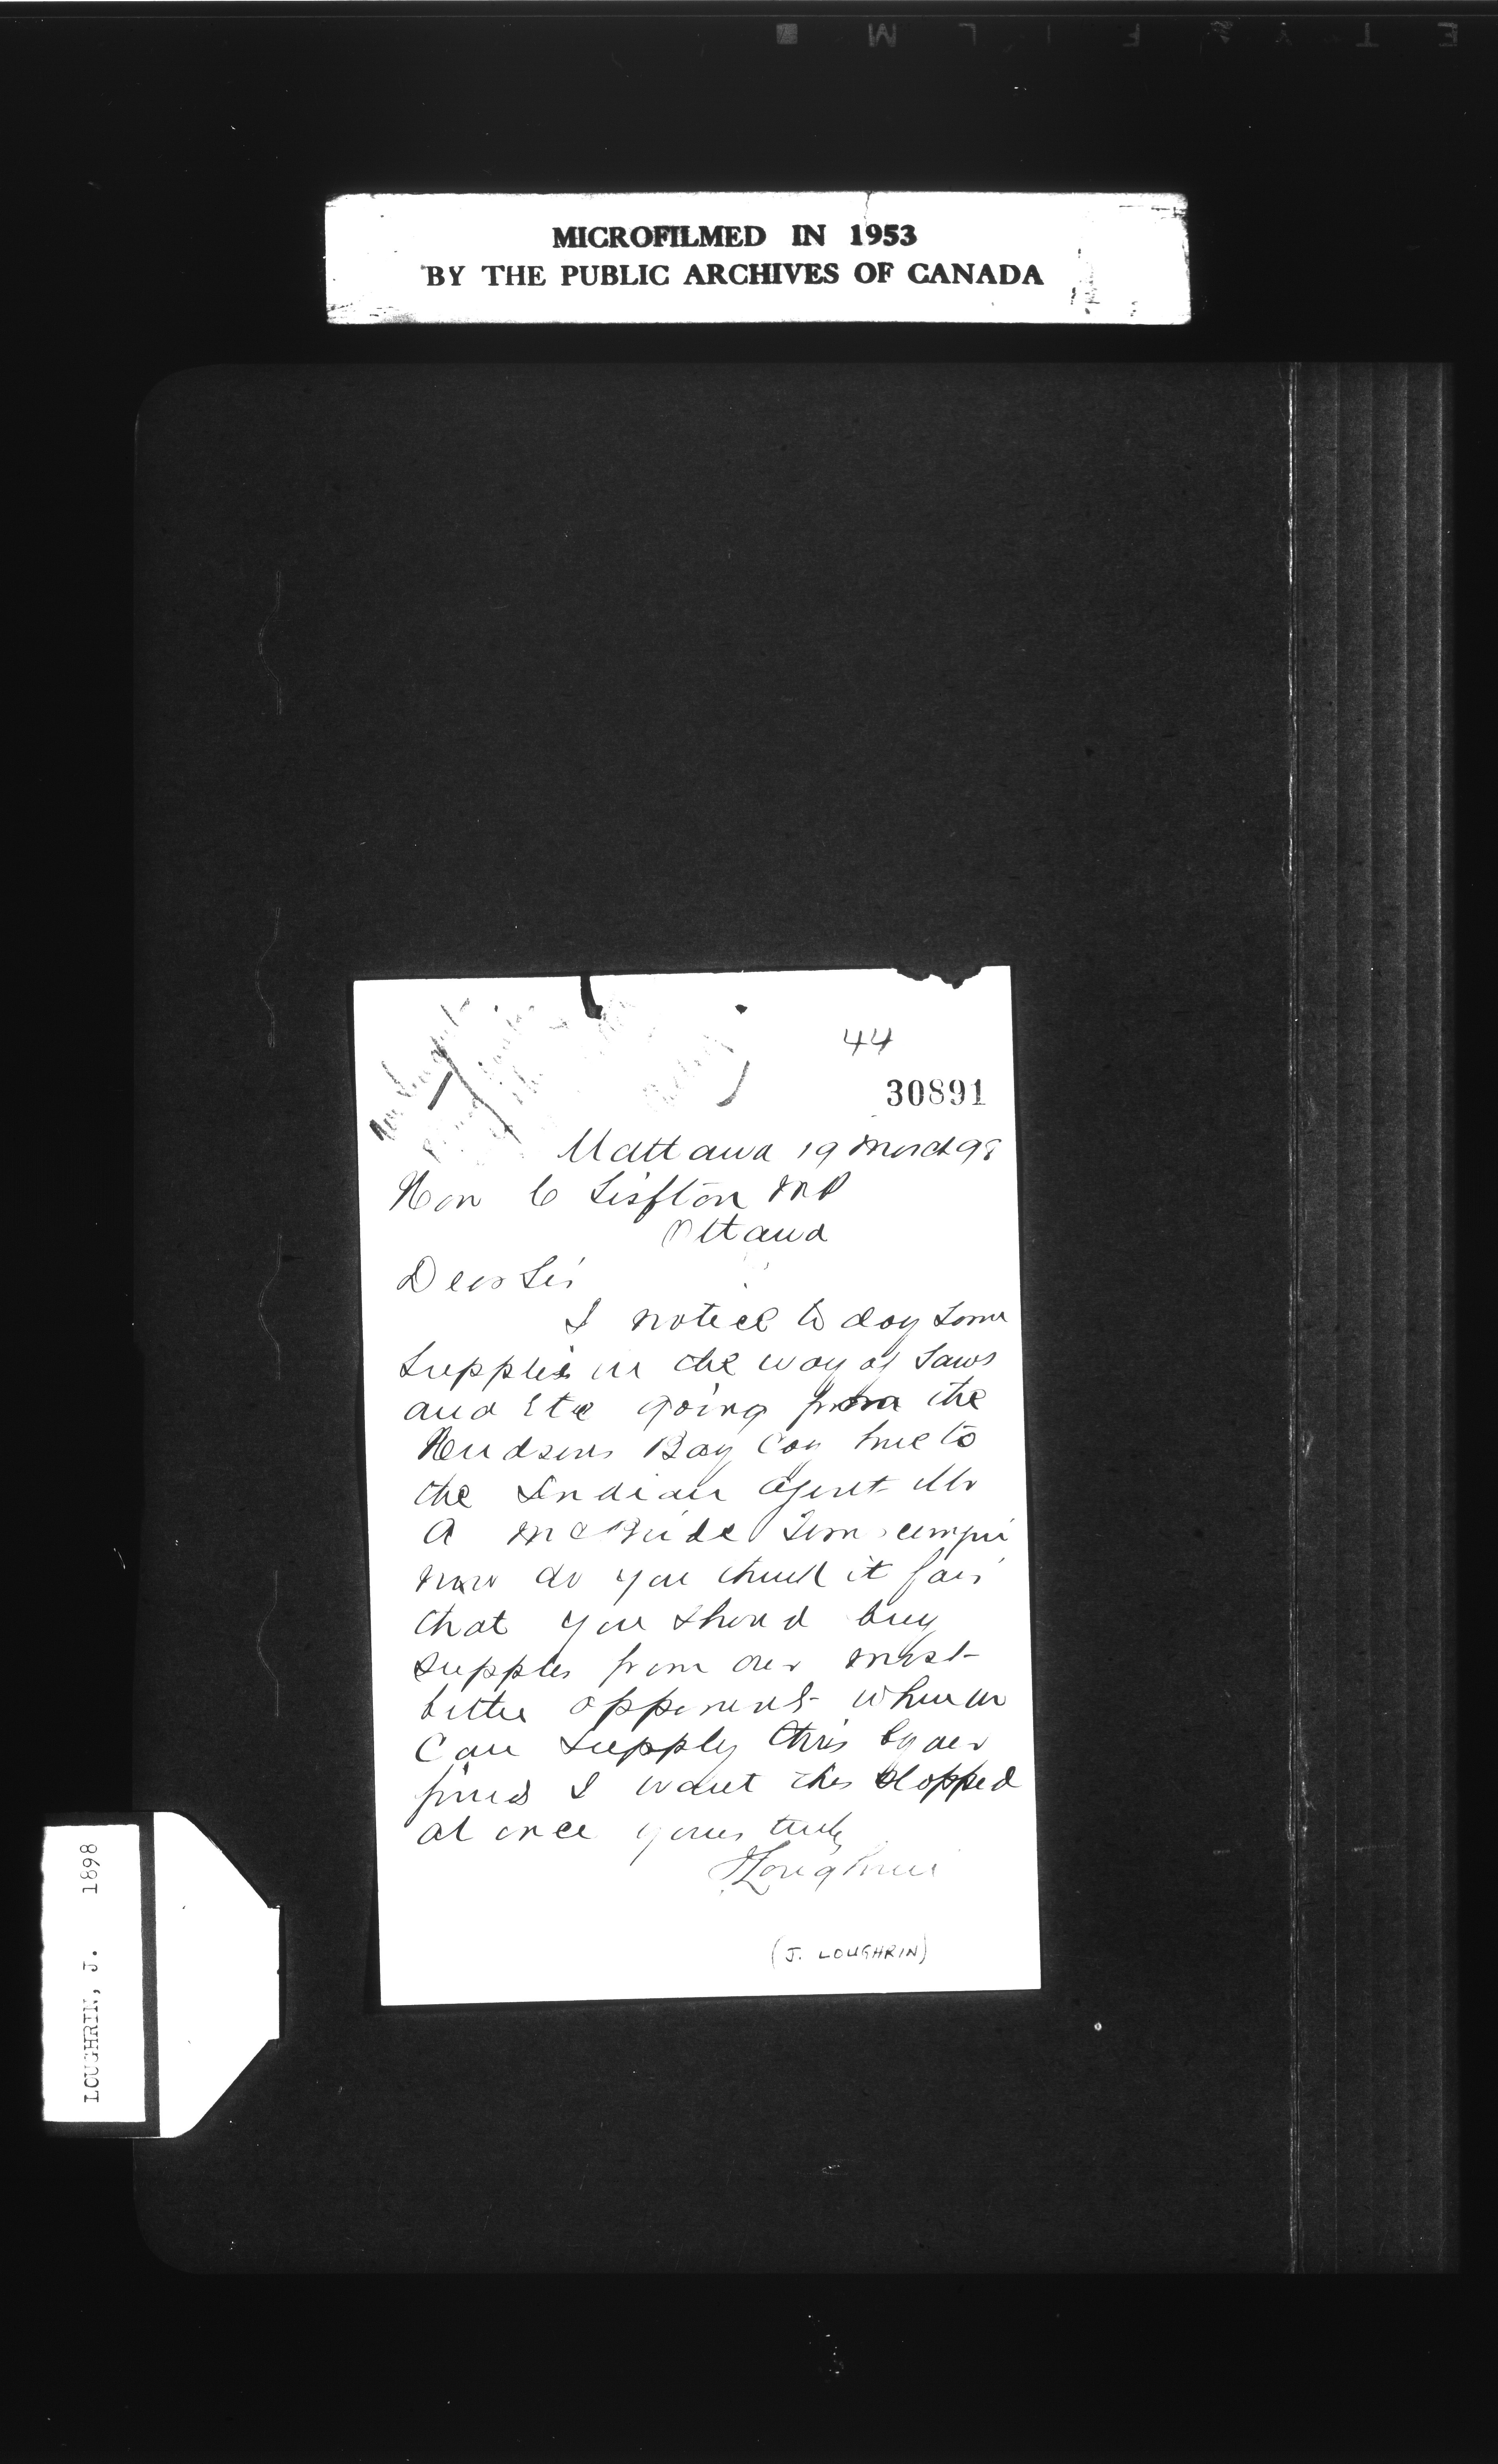 MICROFILMED IN 1953
BY THE PUBLIC ARCHIVES OF CANADA
44
30891
Mattawa 19 March 98
Hon C Sisfton MP
Ottawa
Dear Sir
I notice to day some
supplies in the way of saws
and Etc going from the
Hudsons Bay Coy here to
the Indian agent Mr
A McBride
now do you think it fair
that you should buy
supplies from our most
bitter opponents when we
can supply this by our
friends I want this stopped
at once yours truly
J Loughrin
(J. LOUGHRIN)
LOUGHRIN, J. 1898